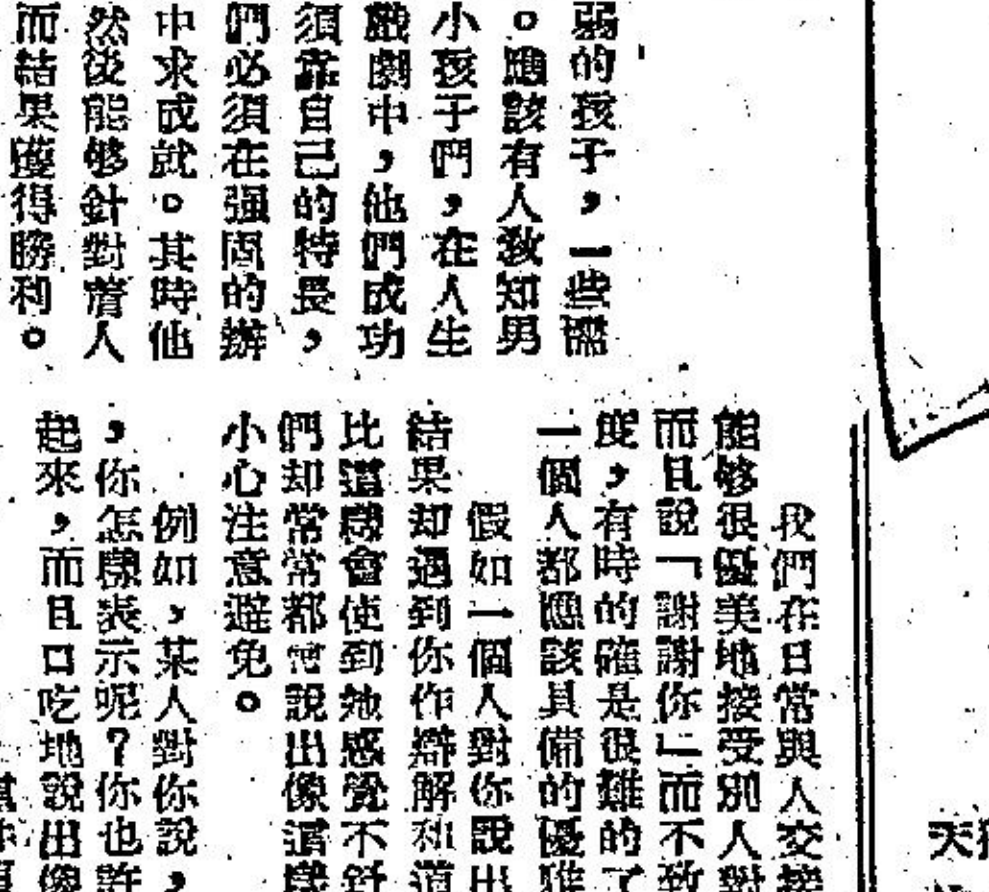 弱的孩子，一些
。應該有人教知男
小孩子們，在人生
戲劇中，他們成功
須靠自己的特長，
們必須在强固的辦
中求成就。其時他
然後能够針對着人
而結果獲得勝利。
我們在日常與人交接
能够很優美地接受別人對
而且說「謝謝你」而不致
度，有時的確是很難的了
一個人都應該具備的優雅
假如一個人對你說出
結果却遇到你作辯解和道
比這樣會使到她感覺不舒
們却常常都會說出像這樣
小心注意避免。
例如，某人對你說，
，你怎樣表示呢？你也許
起來，而且口吃地說出像
天